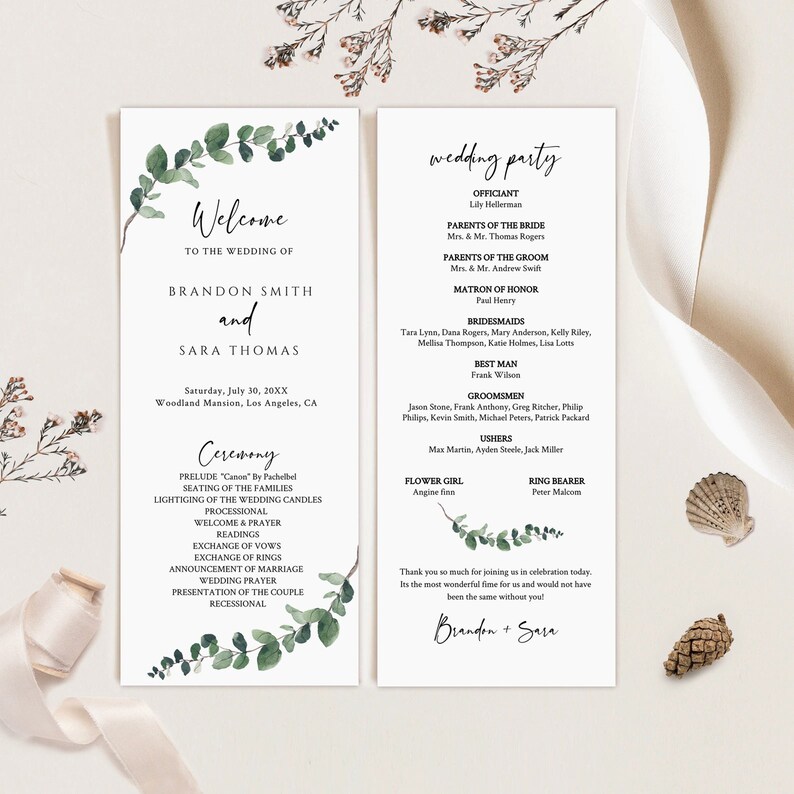 Welcome
TO THE WEDDING OF
BRANDON SMITH
and
SARA THOMAS
Saturday, July 30, 20XX
Woodland Mansion, Los Angeles, CA
Ceremony
PRELUDE "Canon" By Pachelbel
SEATING OF THE FAMILIES
LIGHTIGING OF THE WEDDING CANDLES
PROCESSIONAL
WELCOME & PRAYER
READINGS
EXCHANGE OF VOWS
EXCHANGE OF RINGS
ANNOUNCEMENT OF MARRIAGE
WEDDING PRAYER
PRESENTATION OF THE COUPLE
RECESSIONAL
wedding party
OFFICIANT
Lily Hellerman
PARENTS OF THE BRIDE
Mrs. & Mr. Thomas Rogers
PARENTS OF THE GROOM
Mrs. & Mr. Andrew Swift
MATRON OF HONOR
Paul Henry
BRIDESMAIDS
Tara Lynn, Dana Rogers, Mary Anderson, Kelly Riley,
Mellisa Thompson, Katie Holmes, Lisa Lotts
BEST MAN
Frank Wilson
GROOMSMEN
Jason Stone, Frank Anthony, Greg Ritcher, Philip
Philips, Kevin Smith, Michael Peters, Patrick Packard
USHERS
Max Martin, Ayden Steele, Jack Miller
FLOWER GIRL
Angine finn
RING BEARER
Peter Malcom
Thank you so much for joining us in celebration today.
Its the most wonderful fime for us and would not have
been the same without you!
Brandon + Sara